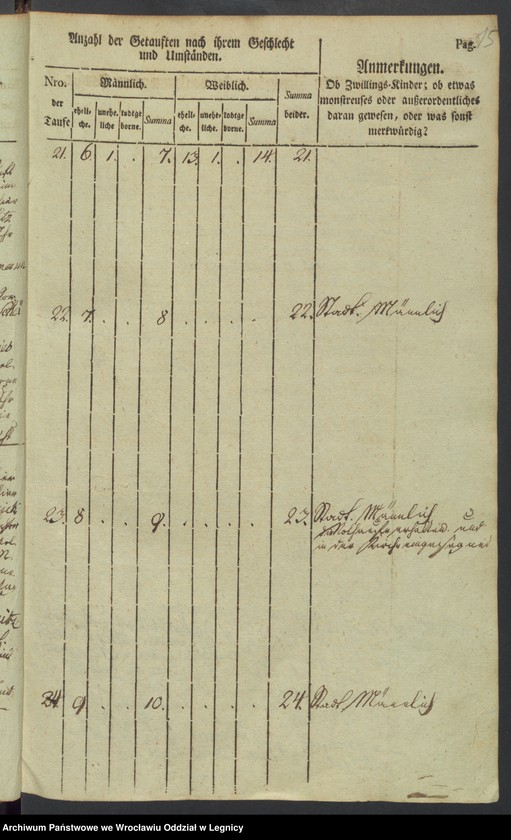 Pag. 15
Anzahl der Getauften nach ihrem Geschlecht
und Umständen.
Anmerkungen.
Ob Zwillings-Kinder; ob etwas
monstreuses oder außerordentliches
daran gewesen, oder was sonst
merkwürdig?
Nro.
der
Taufe
Männlich.
Weiblich.
Summa
beider.
eheli-
che.
unehe-
liche
todtge
borne.
Summa
eheli-
che.
unehe-
liche.
todtge
borne.
Summa
21. 6. 1. . 7. 13. 1. . 14. 21.
22. 7. . . 8 . . . . 22. Stadt. Männlich
23. 8 . . 9. . . . . 23. Stadt. Männlich
erhalten und
in der
24. 9 . . 10. . . . . 24. Stadt Männlich
Archiwum Państwowe we Wrocławiu Oddział w Legnicy